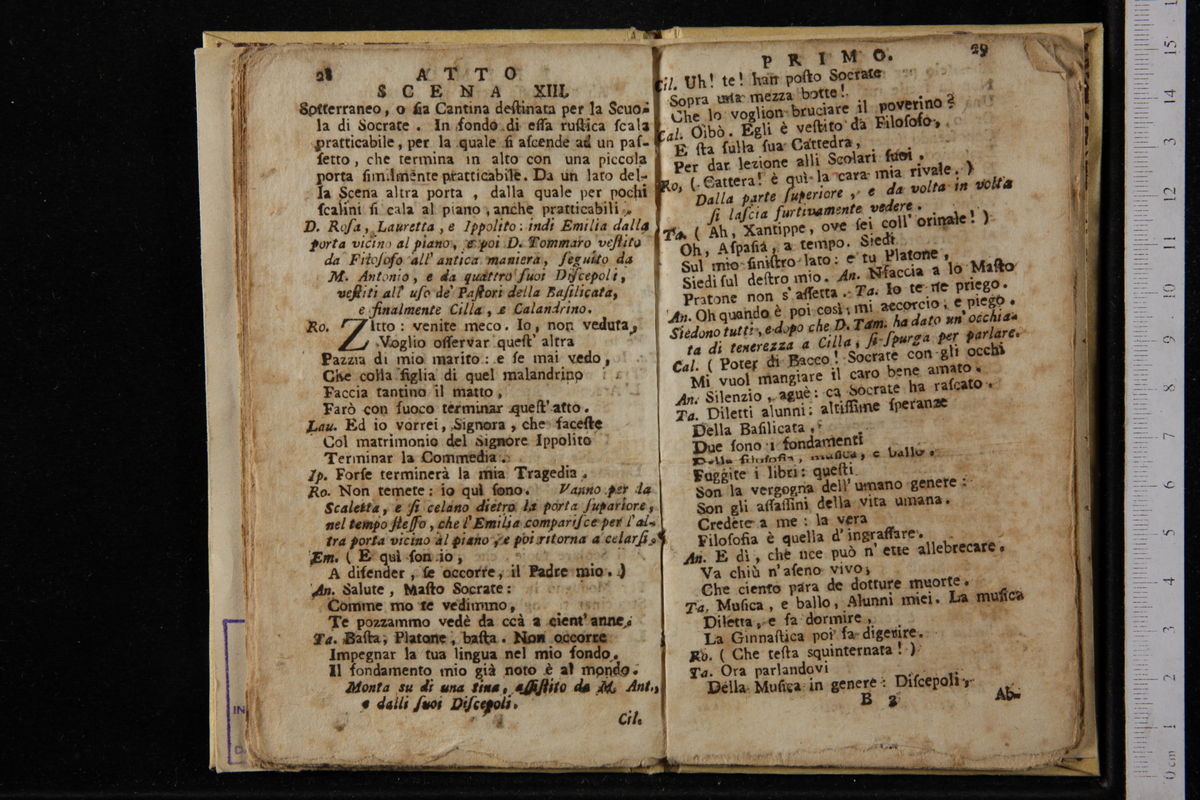 28
ATTO
SCENA XIII.
Sotterraneo, o ſia Cantina deſtinata per la Scuo-
la di Socrate. In fondo di eſſa ruſtica ſcala
pratticabile, per la quale ſi aſcende ad un paſ-
ſetto, che termina in alto con una piccola
porta ſimilmente pratticabile. Da un lato del-
la Scena altra porta, dalla quale per pochi
ſcalini ſi cala al piano, anche pratticabili.
D. Roſa, Lauretta, e Ippolito: indi Emilia dalla
porta vicino al piano, e poi D. Tommaro veſtito
da Filoſofo all' antica maniera, ſeguito da
M. Antonio, e da quattro ſuoi Diſcepoli,
veſtiti all' uſo de' Paſtori della Baſilicata,
e finalmente Cilla, e Calandrino.
Ro. ZItto: venite meco. Io, non veduta,
Voglio oſſervar queſt' altra
Pazzia di mio marito: e ſe mai vedo,
Che colla figlia di quel malandrino
Faccia tantino il matto,
Farò con fuoco terminar queſt' atto.
Lau. Ed io vorrei, Signora, che faceſte
Col matrimonio del Signore Ippolito
Terminar la Commedia.
Ip. Forſe terminerà la mia Tragedia.
Ro. Non temete: io quì ſono. Vanno per la
Scaletta, e ſi celano dietro la porta ſupariore,
nel tempo ſteſſo, che l'Emilia compariſce per l'al-
tra porta vicino al piano, e poi ritorna a celarſi.
Em. ( E quì ſon io,
A difender, ſe occorre, il Padre mio. )
An. Salute, Maſto Socrate:
Comme mo te vedimmo,
Te pozzammo vedè da ccà a cient' anne.
Ta. Baſta, Platone, baſta. Non occorre
Impegnar la tua lingua nel mio fondo.
Il fondamento mio già noto è al mondo.
Monta su di una tina, aſſiſtito da M. Ant.,
e dalli ſuoi Diſcepoli.
Cil.
PRIMO.
29
Cil. Uh! te! han poſto Socrate
Sopra una mezza botte!
Che lo voglion bruciare il poverino?
Cal. Oibò. Egli è veſtito da Filoſofo,
E ſta ſulla ſua Cattedra,
Per dar lezione alli Scolari ſuoi.
Ro. ( Cattera! è quì la cara mia rivale. )
Dalla parte ſuperiore, e da volta in volta
ſi laſcia furtivamente vedere.
Ta. ( Ah, Xantippe, ove ſei coll' orinale! )
Oh, Aſpaſia, a tempo. Siedi
Sul mio ſiniſtro lato: e tu Platone,
Siedi ſul deſtro mio. An. Nfaccia a lo Maſto
Pratone non s' aſſetta. Ta. Io te ne priego.
An. Oh quando è poi così, mi accorcio, e piego.
Siedono tutti, e dopo che D. Tam. ha dato un' occhia-
ta di tenerezza a Cilla, ſi ſpurga per parlare.
Cal. ( Poter di Bacco! Socrate con gli occhi
Mi vuol mangiare il caro bene amato.
An. Silenzio, aguè: ca Socrate ha raſcato.
Ta. Diletti alunni: altiſſime ſperanze
Della Baſilicata,
Due ſono i fondamenti
Della filoſofia, muſica, e ballo.
Fuggite i libri: queſti
Son la vergogna dell' umano genere:
Son gli aſſaſſini della vita umana.
Credete a me: la vera
Filoſofia è quella d' ingraſſare.
An. E dì, che nce può n' ette allebrecare.
Va chiù n' aſeno vivo,
Che ciento para de dotture muorte.
Ta. Muſica, e ballo, Alunni miei. La muſica
Diletta, e fa dormire,
La Ginnaſtica poi fa digerire.
Ro. ( Che teſta squinternata! )
Ta. Ora parlandovi
Della Muſica in genere: Diſcepoli,
B 2
Ab-